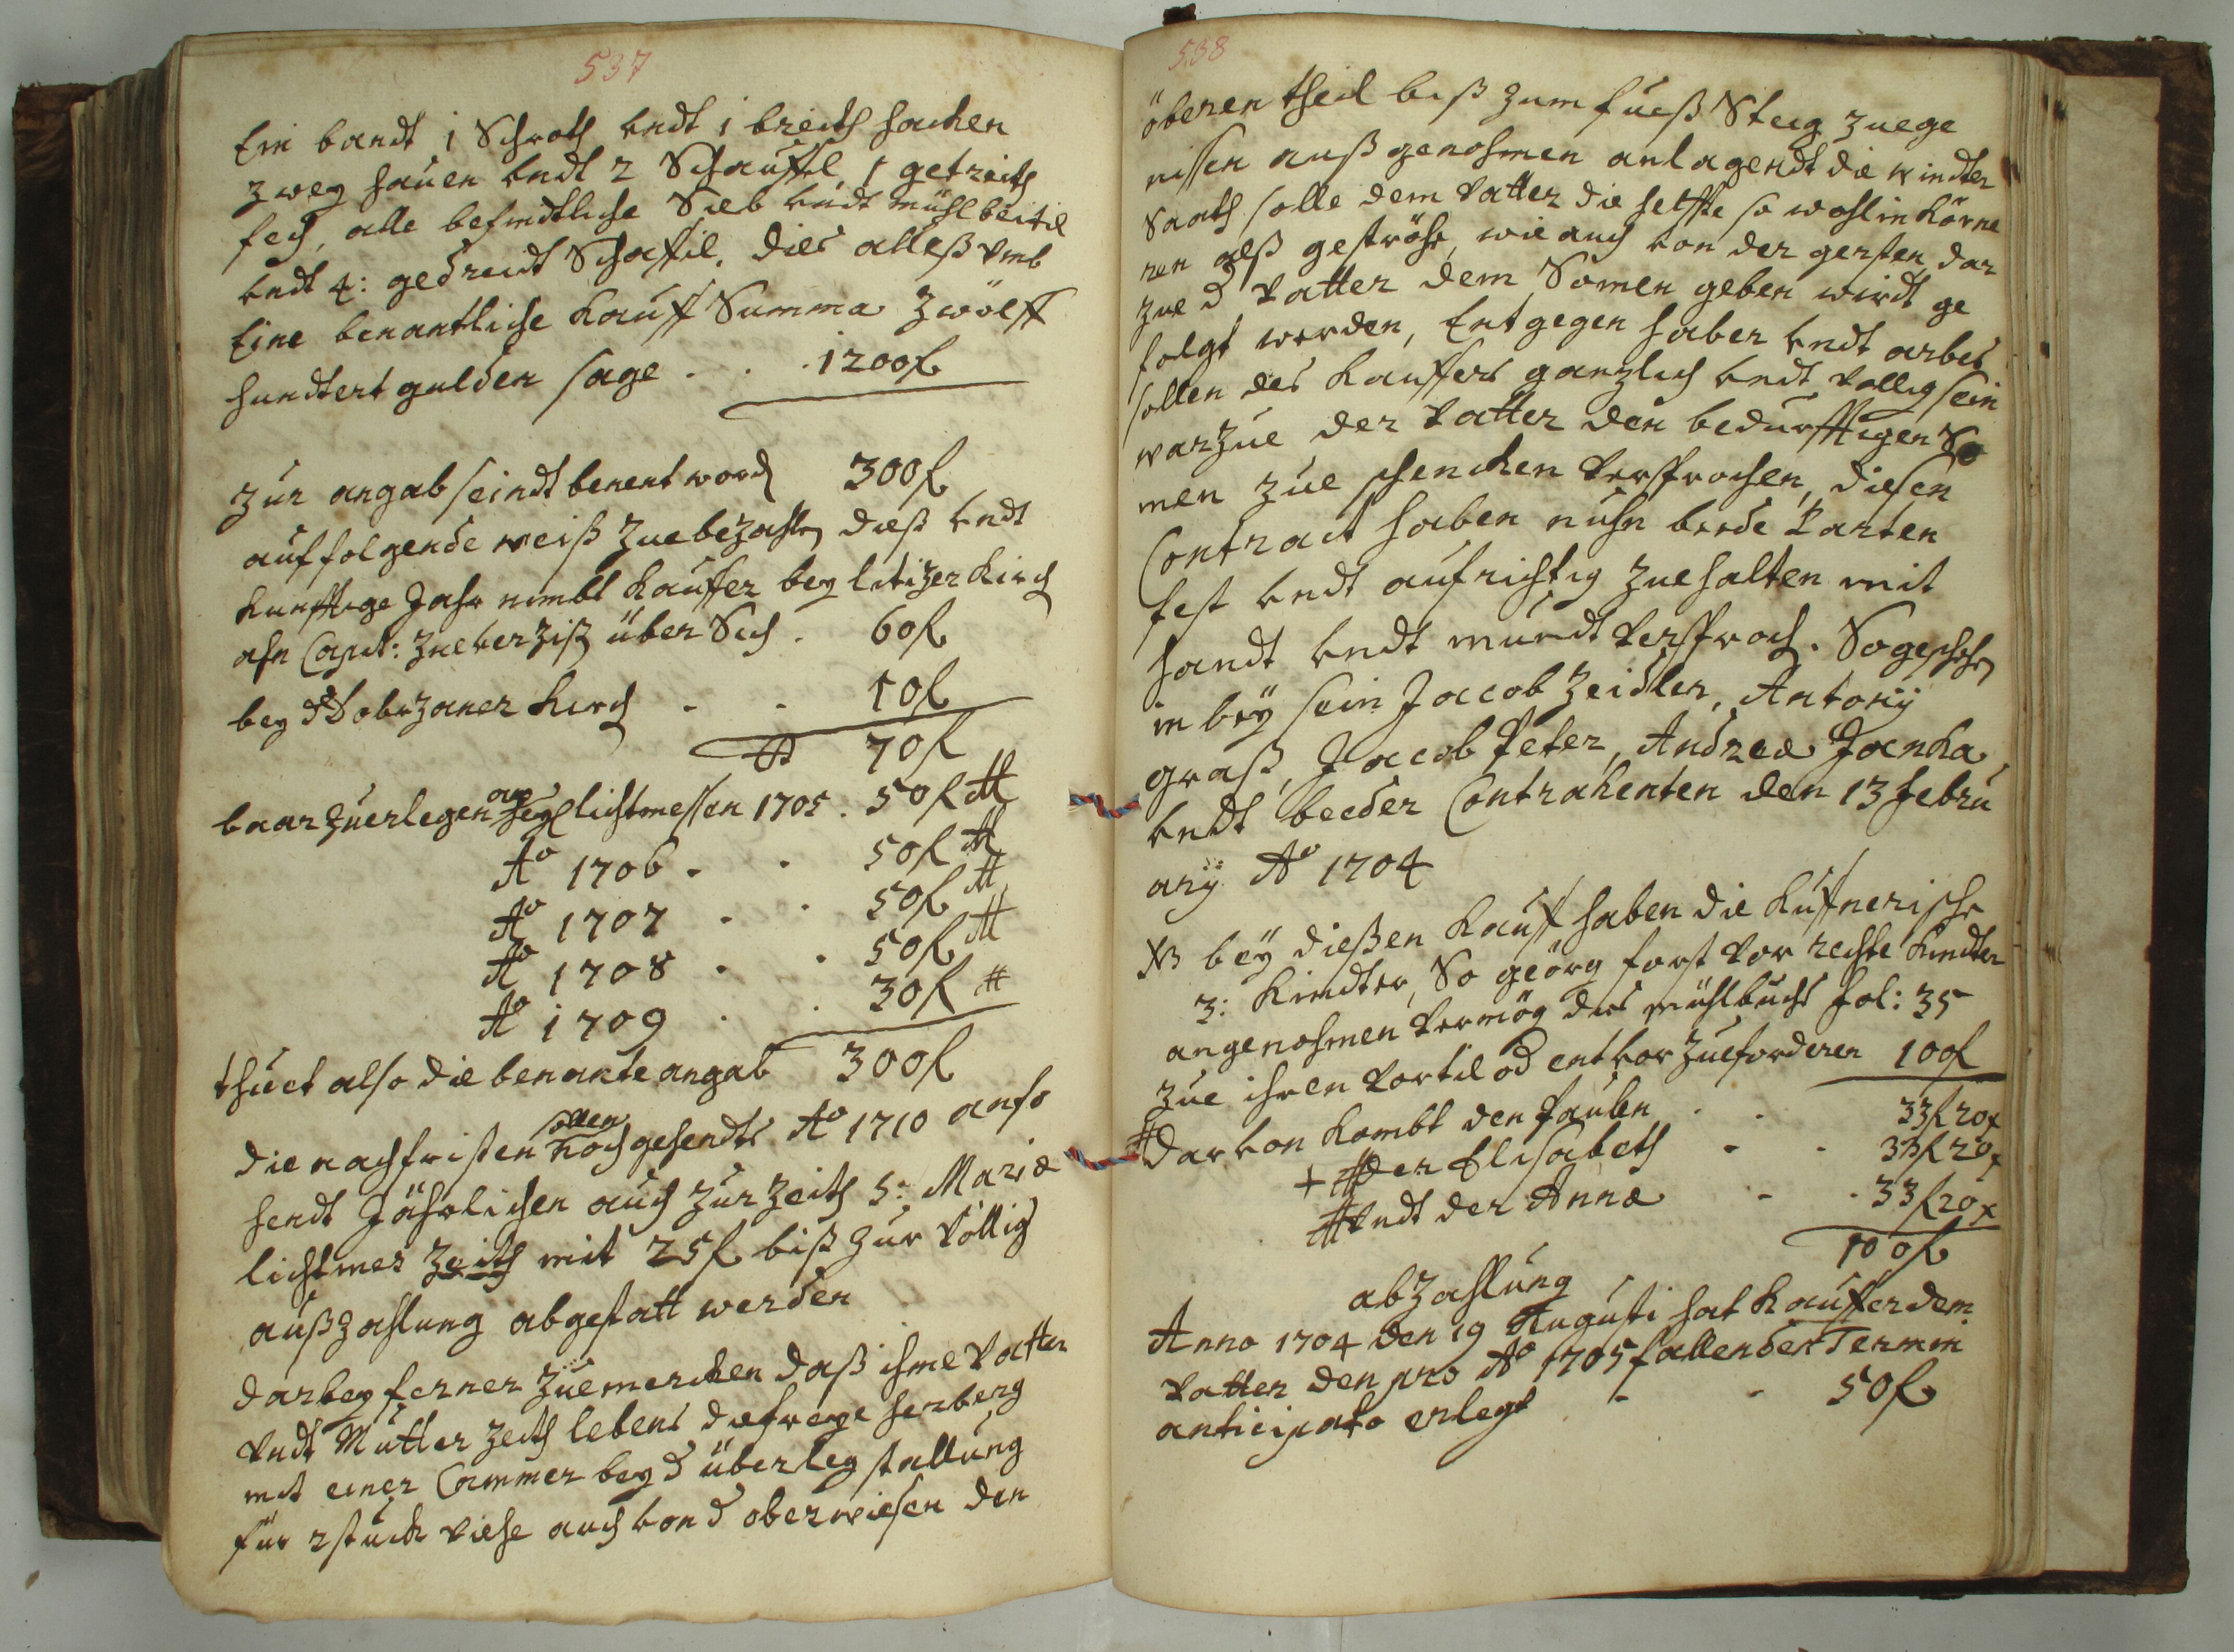 537
Ein bandt 1 Schroth undt 1 breith hacken
zwey hauen undt 2 Schauffl, 1 getreith
fech, alle befindtliche Sieb undt mühlbeitil
undt 4: gedreidt Schaffil. dies alleß umb
Eine benantliche Kauff Summa Zwölff
hundtert gulden sage . . . 1200 f
Zur angab seindt benent word 300 f
auf folgende weiß zue bezahlen dieß undt
kunfftige Jahr nimbt Kauffer bey litizer Kirch
ahn Capit: zue verziß über Sich . 60 f
bey d Dobrzaner Kirch . . 10 f
70 f
baar zuerlegen auf hey lichtmessen 1705 . 50 f
Aō 1706 . . 50 f
Aō 1707 . . 50 f
Aō 1708 . . 50 f
Aō 1709 . . 30 f
thuet also die benante angab 300 f
die nachfristen sollen nochgehendts Aō 1710 anfo
hendt Jährlichen auch zur zeith S: Mariæ
lichtmes zeith mit 25 f biß zur völlig
außzahlung abgestatt werden
darbey ferner zue mercken daß ihme vatter
undt Mutter zeith lebens die freye herberg
mit einer Cammer bey d überleg stallung
für 2 stuckh viehe auch von d oberwiesen den
538
öberen theil biß zum fueß Steig zuege
nissen auß genohmen anlagendt die windter
Saath solle dem vatter die helffte so wohl in Körne
ren alß geströhe, wie auch von der gersten, dar
zue d vatter dem Somen geben wirdt ge
folgt werden, Entgegen haber undt arbes
sollen des Kauffers ganzlich undt völlig sein
warzue der vatter den bedurfftigen So
men zue schencken versprochen, diesen
Contract haben nuhn beede Parten
fest undt aufrichtig zue halten mit
handt undt mundt versproch. So geschehen
in bey sein Jacob Zeidler, Antonij
graß, Jacob Peter, Andreæ Janka
undt beeder Contrahenten den 13 febru
arij Aō 1704
NB bey dießen Kauff haben die Kuffnerische
3: Kindter, So georg forst vor rechte Kindter
angenohmen vermög des mühlbuchs fol: 35
zue ihren vortil od entvor zueforderen 100 f
darvon kombt den Paulen . . 33 f 20 x
+ der Elisabeth . . 33 f 20 x
undt der Annæ . . 33 f 20 x
100 f
abzahlung
Anno 1704 den 19 Augusti hat Kauffer dem
vatter den pro Aō 1705 fallender Termin
anticipato erlegt . . 50 f